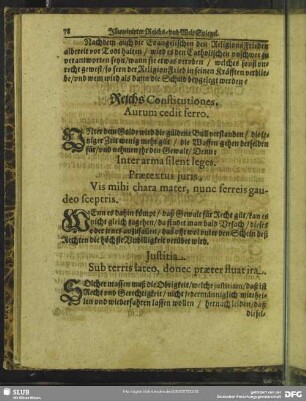 78 Illuminirter Reichs- vnd Welt-Spiegel.
Nachdem auch die Evangelischen den Religions Frieden
allbereit vor Todt halten / wird es den Catholischen vnschwer zu
verantworten seyn / wann sie etwas verüben / welches sonst vn-
recht gewest / so fern der Religion Fried in seinen Kräfften verblie-
be / vnd wem wird als dann die Schuld beygelegt werden?
Reichs Constitutiones.
Aurum cedit ferro.
Vnter dem Golde wird die güldene Bull verstanden / die
niger Zeit wenig mehr gilt / die Waffen gehen derselben
für / vnd nehmen jhr den Gewalt / Denn:
Inter arma silent leges.
Prætextus juris.
Vis mihi chara mater, nunc ferreis gau-
deo sceptris.
Wenn es dahin kömpt / daß Gewalt für Recht gilt / kan es
nicht gleich zugehen / da findet man bald Ursach / dieses
oder jenes anzufallen / daß offt wol unter den Schein deß
Rechten die höchste Vnbilligkeit verübet wird.
Justitia.
Sub terris lateo, donec præter fluat ira.
Solcher massen muß die Obrigkeit / welche justitiam / das ist
Recht vnd Gerechtigkeit / nicht jedermänniglich mitthei-
len vnd wiederfahren lassen wollen / hernach leiden / daß
diesel-
SLUB
Wir führen Wissen.
gefördert von der
Deutschen Forschungsgemeinschaft
DFG